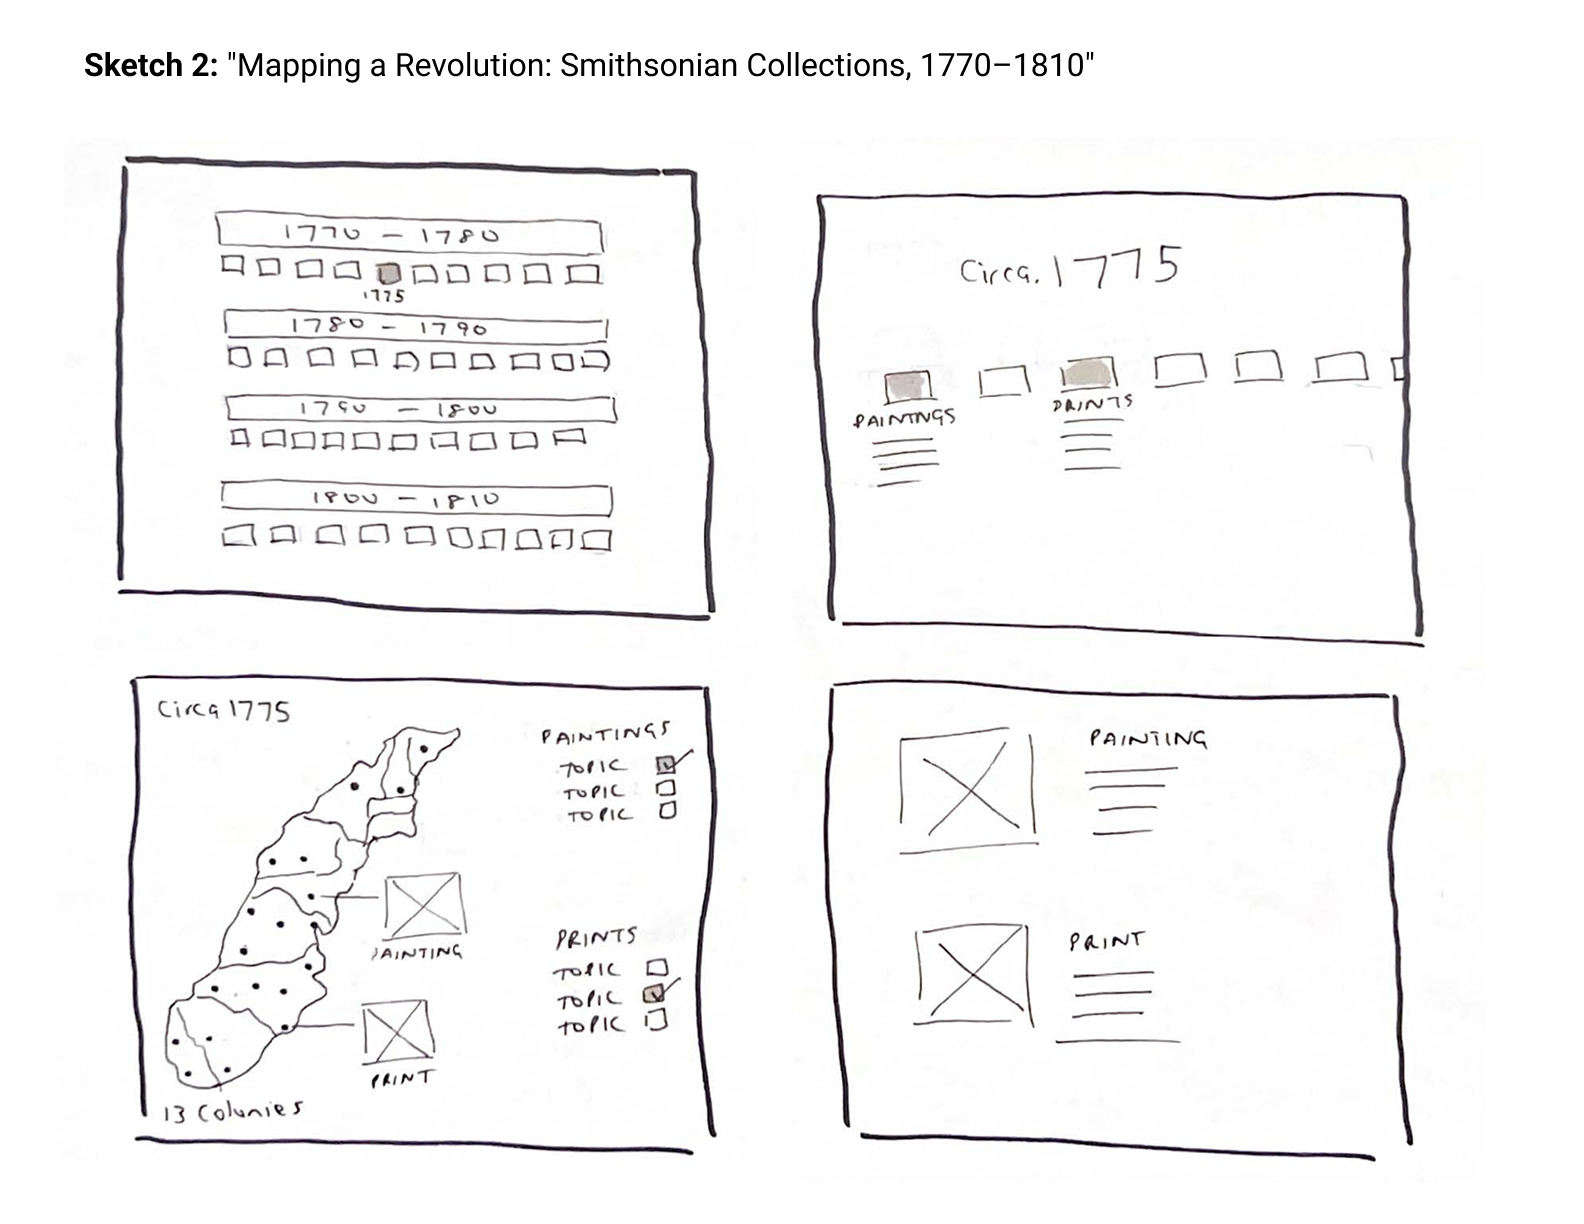 Sketch 2: "Mapping a Revolution: Smithsonian Collections, 1770–1810"
1770 – 1780
1775
1780 – 1790
1790 – 1800
1800 – 1810
Circa. 1775
PAINTINGS
PRINTS
Circa 1775
PAINTINGS
TOPIC
TOPIC
TOPIC
PAINTING
PRINTS
TOPIC
TOPIC
TOPIC
PRINT
13 Colonies
PAINTING
PRINT